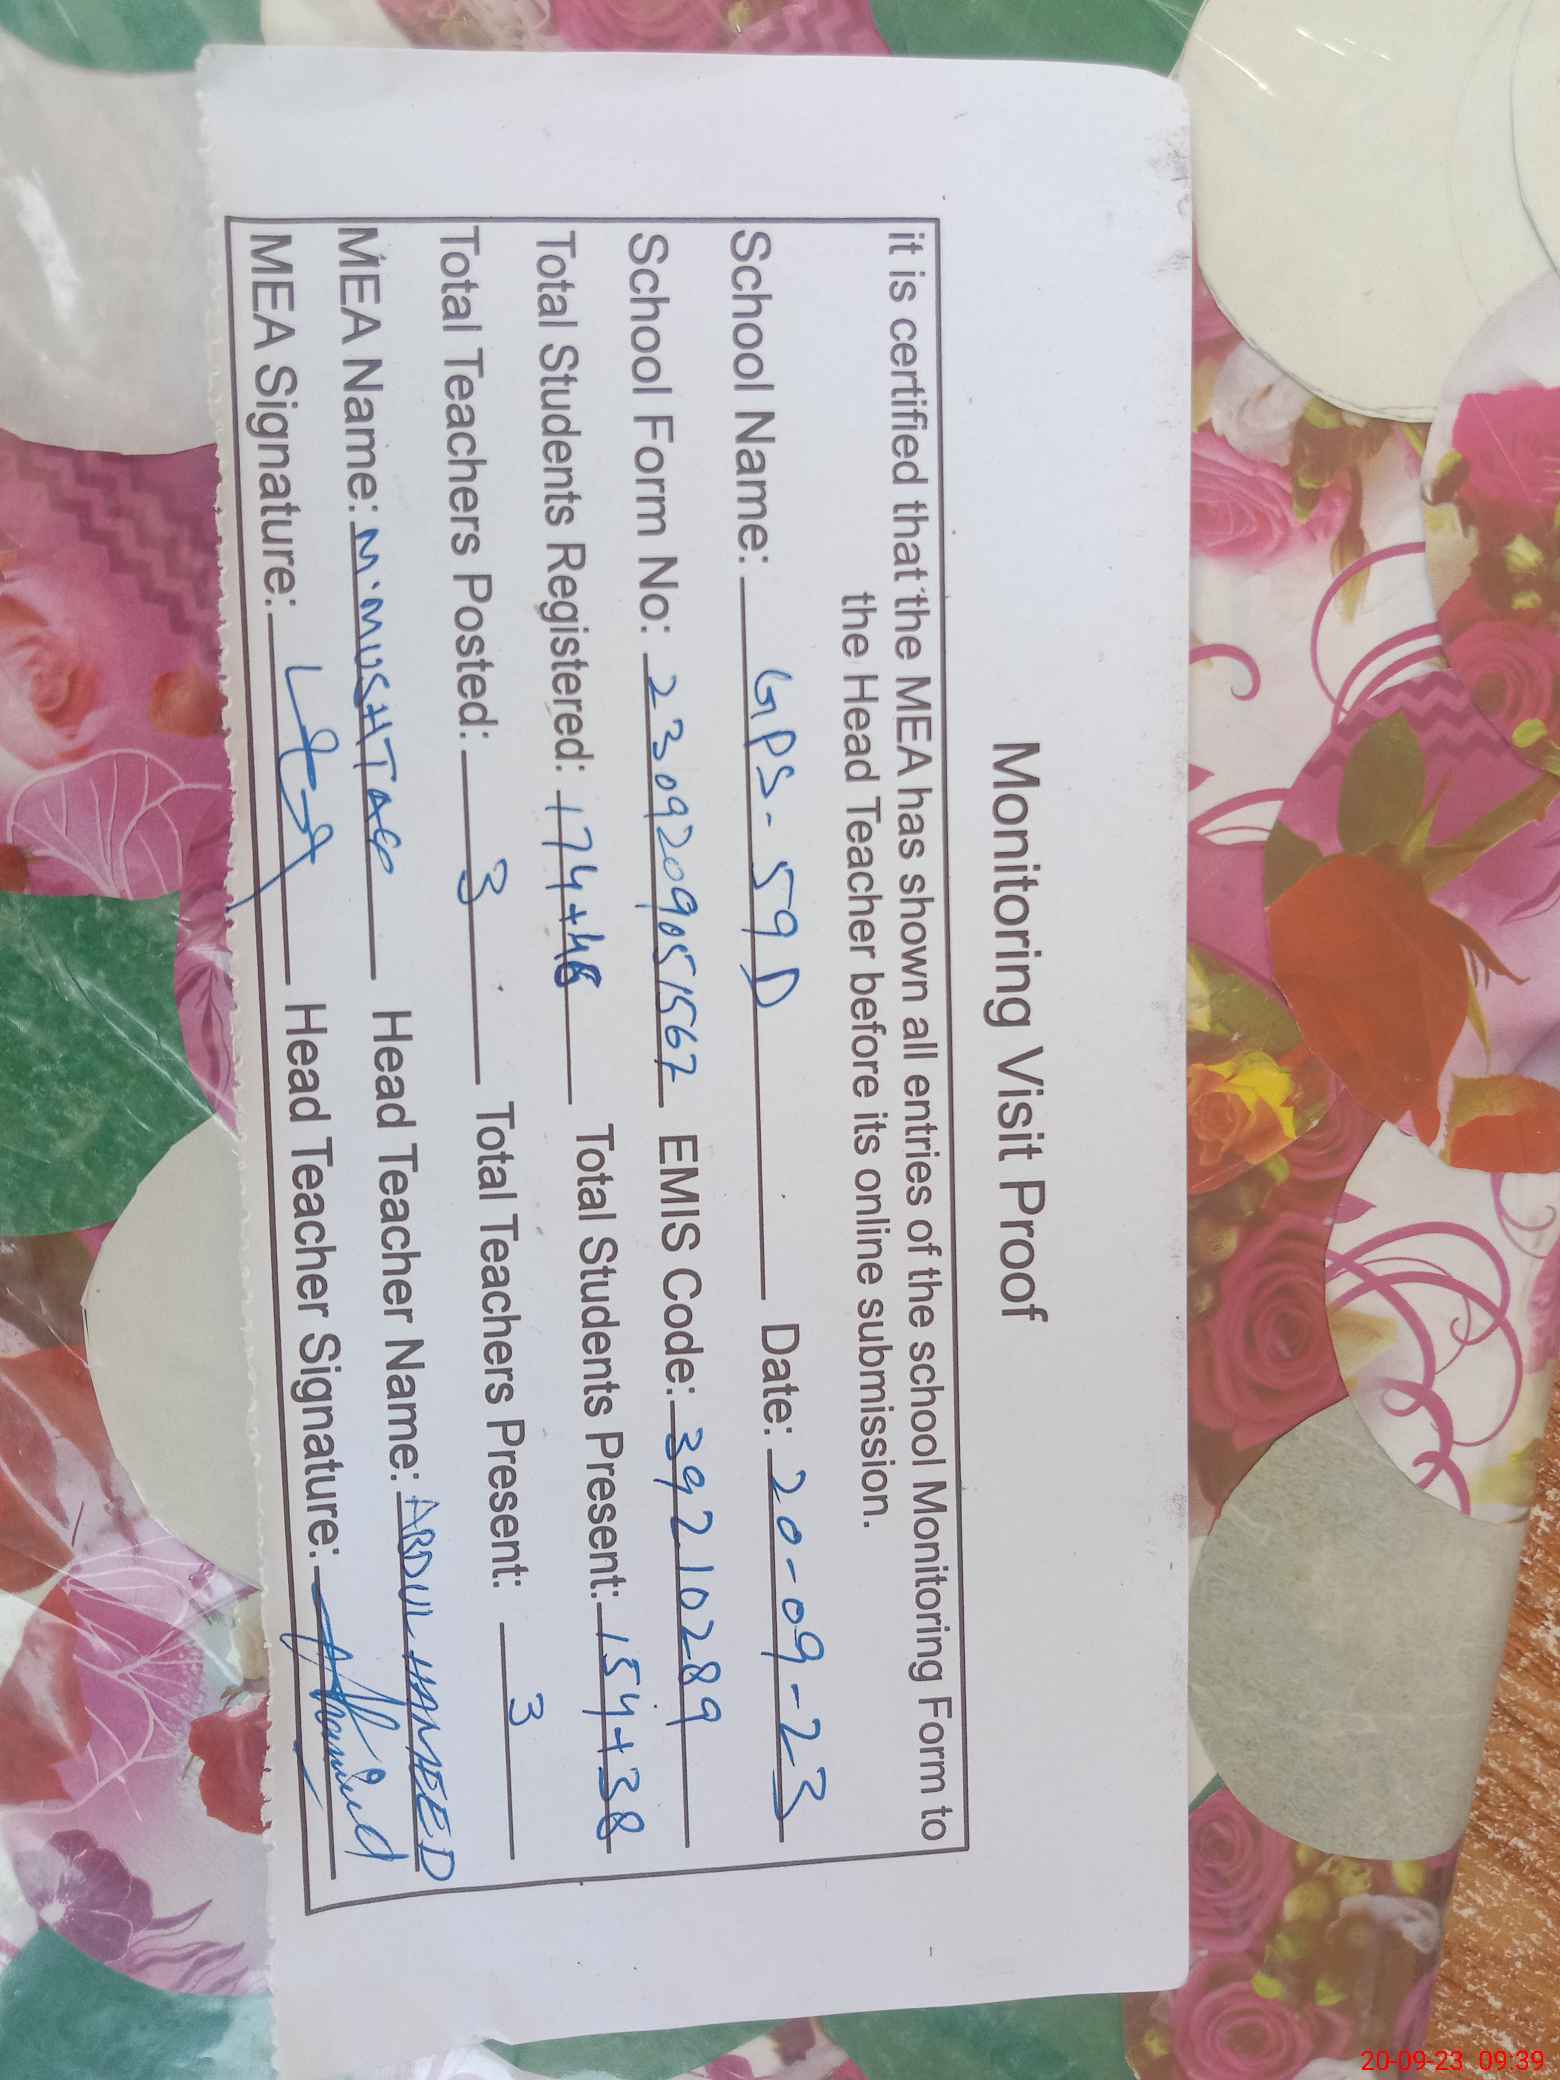 Monitoring Visit Proof
it is certified that the MEA has shown all entries of the school Monitoring Form to
the Head Teacher before its online submission.
School Name: GPS-59D Date: 20-09-23
School Form No: 2309209051567 EMIS Code: 39210289
Total Students Registered: 174+48 Total Students Present: 154+38
Total Teachers Posted: 3 Total Teachers Present: 3
MEA Name: M.MUSHTAQ Head Teacher Name: ABDUL HAMEED
MEA Signature: Head Teacher Signature: AHameed
20-09-23 09:39